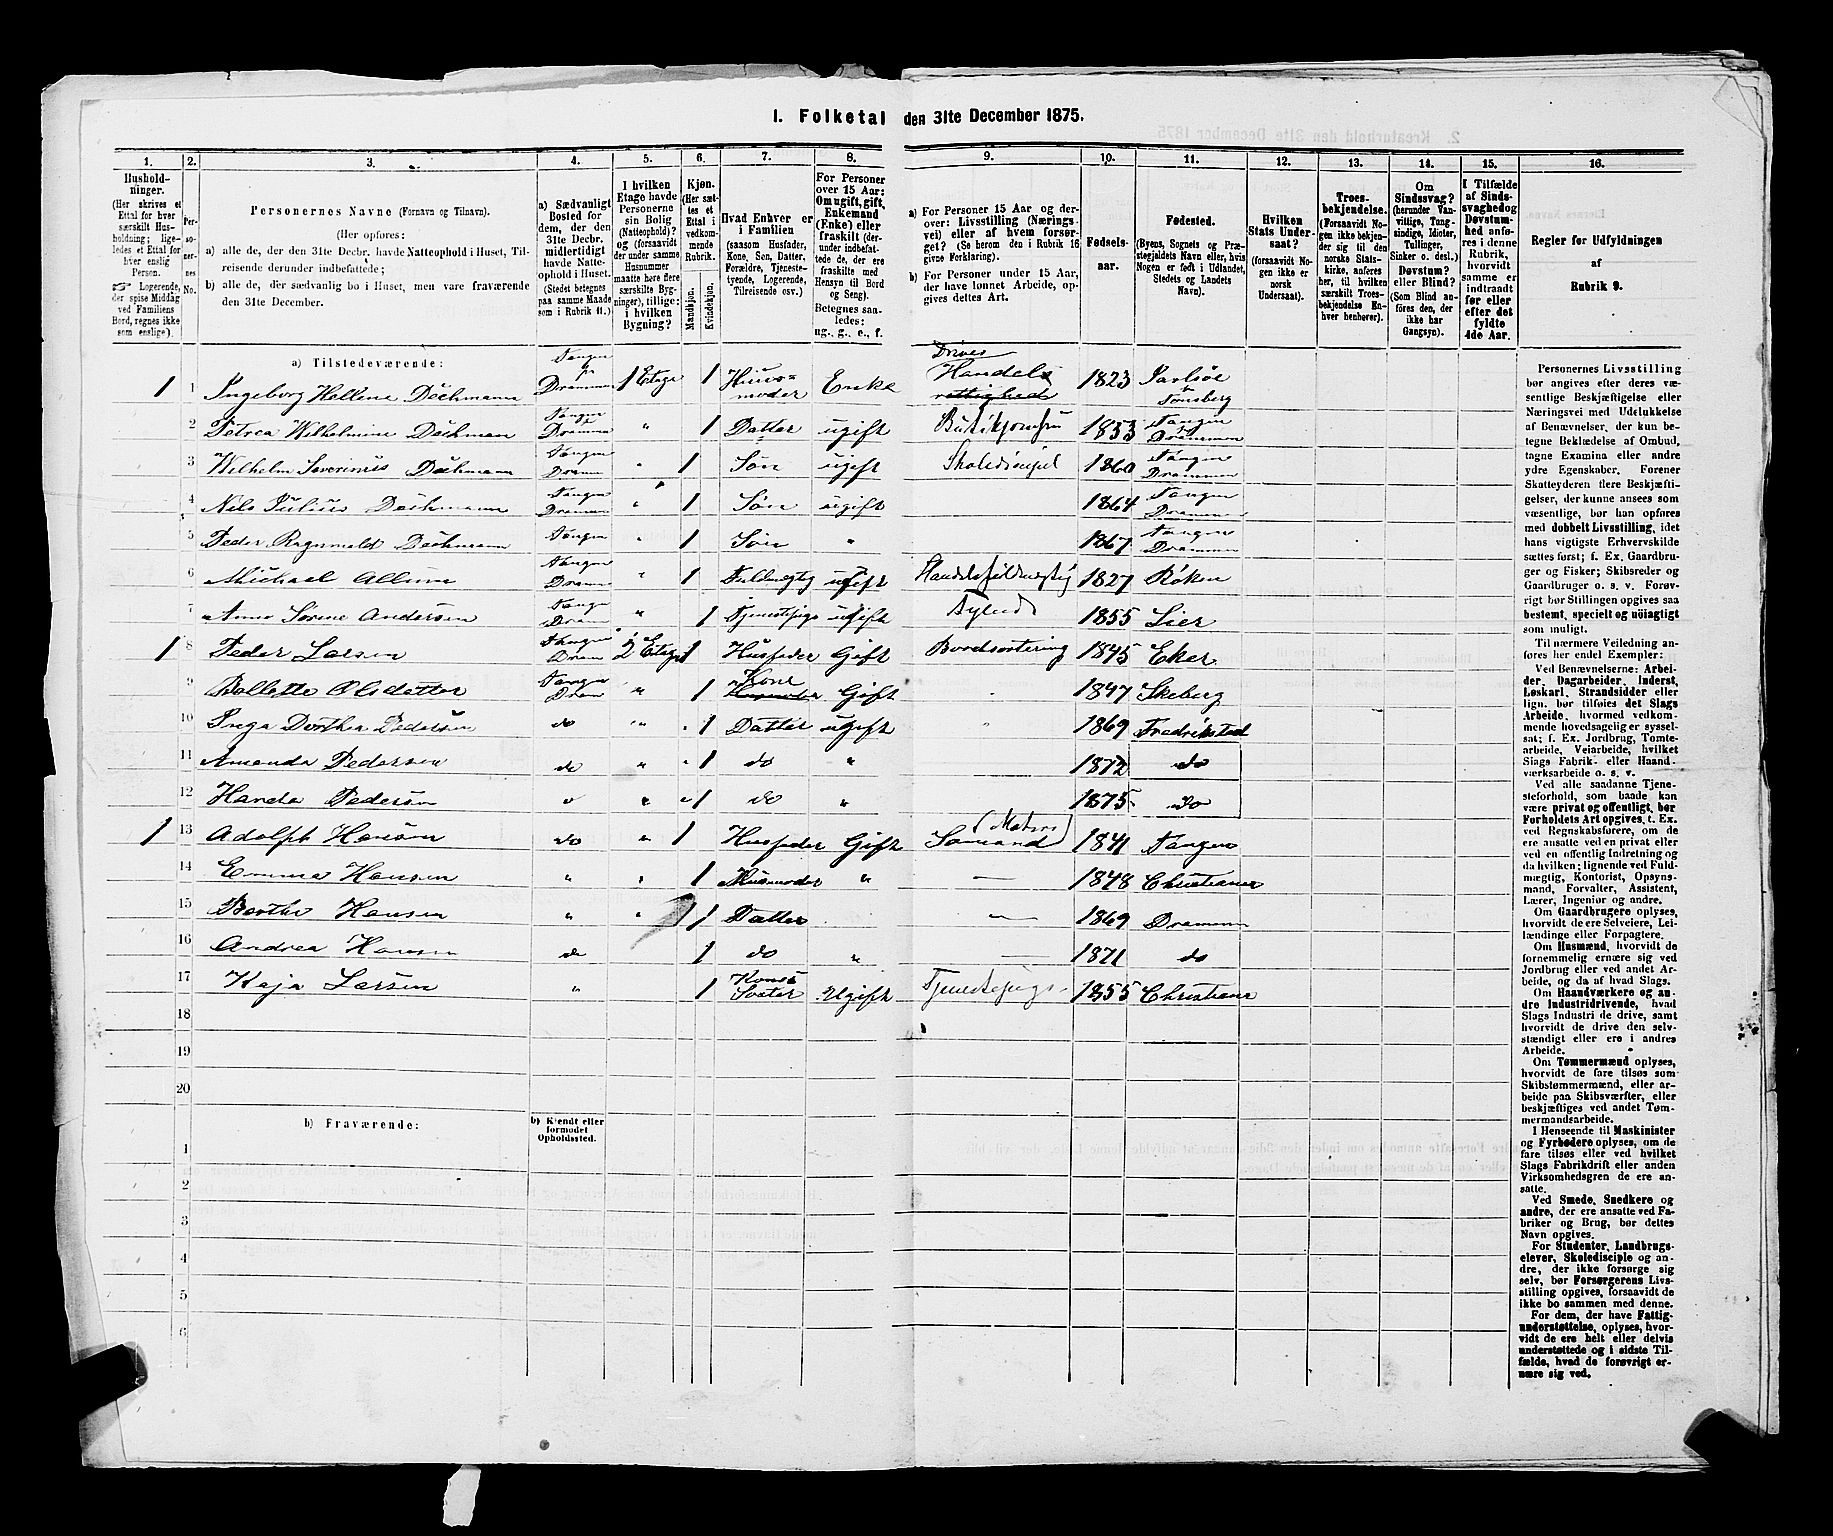 1. Folketal den 31te December 1875.
1. 2. 3. 4. 5. 6. 7. 8. 9. 10. 11. 12. 13. 14. 15. 16.
Husholdninger. (Her skrives et Ettal for hver særskilt Husholdning; ligeledes et Ettal for hver enslig Person. Logerende, der spise Middag ved Familiens Bord, regnes ikke som enslige).
Personernes No.
Personernes Navne (Fornavn og Tilnavn).
(Her opføres:
a) alle de, der den 31te Decbr. havde Natteophold i Huset, Tilreisende derunder indbefattede;
b) alle de, der sædvanlig bo i Huset, men vare fraværende den 31te December.
a) Sædvanligt Bosted for dem, der den 31te Decbr. midlertidigt havde Natteophold i Huset. (Stedet betegnes paa samme Maade som i Rubrik 11.)
I hvilken Etage havde Personerne sin Bolig (Natteophold)? og (forsaavidt der under samme Husnummer maatte høre flere særskilte Bygninger), tillige: i hvilken Bygning?
Kjøn. (Her sættes et Ettal i vedkommende Rubrik.
Mandkjøn. Kvindekjøn.
Hvad Enhver er i Familien (saasom Husfader, Kone, Søn, Datter, Forældre, Tjenestetyende, Logerende, Tilreisende osv.)
For Personer over 15 Aar: Om ugift, gift, Enkemand (Enke) eller fraskilt (derunder indbefattede de, der ere fraskilte med Hensyn til Bord og Seng). Betegnes saaledes: ug., g., e., f.
a) For Personer 15 Aar og derover: Livsstilling (Næringsvei) eller af hvem forsørget? (Se herom den i Rubrik 16 givne Forklaring).
b) For Personer under 15 Aar, der have lønnet Arbeide, opgives dettes Art.
Fødselsaar.
Fødested. (Byens, Sognets og Præstegjældets Navn eller, hvis Nogen er født i Udlandet, Stedets og Landets Navn).
Hvilken Stats Undersaat? (forsaavidt Nogen ikke er norsk Undersaat).
Troesbekjendelse. (Forsaavidt Nogen ikke bekjender sig til den norske Statskirke, anføres her, til hvilken særskilt Troesbekjendelse Enhver henhører).
Om Sindssvag? (herunder Vanvittige, Tungsindige, Idioter, Tullinger, Sinker o. desl.) Døvstum? eller Blind? (Som Blind anføres den, der ikke har Gangsyn).
I Tilfælde af Sindssvaghed og Døvstumhed anføres i denne Rubrik, hvorvidt samme er indtraadt før eller efter det fyldte 4de Aar.
Regler for Udfyldningen
af
Rubrik 9.
a) Tilstedeværende:
1 1 Ingeborg Hellena Dechmann Tangen pr Drammen 1 Etage 1 Huusmoder Enke Drives Handels 1823 Tønsberg
2 Petrea Wilhelmine Dechman Tangen Drammen " 1 Datter ugift 1853 Tangen Drammen
3 Wilhelm Severinus Dechmann Tangen Dramm " 1 Søn ugift Skoledisipel 1860 Tangen Drammen
4 Nils Julius Dechmann Tangen Drammen " 1 Søn ugift 1864 Tangen Drammen
5 Peder Ragnvald Dechmann Tangen " 1 Søn " 1867 Tangen Drammen
6 Michael Allum Tangen Dramm " 1 Fuldmegtig ugift Handelsfuldmegtig 1827 Røken
7 Anne Sørine Andersen Tangen Dram " 1 Tjenestepige ugift 1855 Lier
1 8 Peder Larsen Tangen Dram 2 Etage 1 Husfader Gift Bordsortering 1845 Eker
9 Bollette Olsdatter Tangen Dram " 1 Kone Gift 1847 Skeberg
10 Inga Dorthea Pedersen do " 1 Datter ugift 1869 Fredrikstad
11 Amanda Pedersen do " 1 do " 1872 do
12 Handa Pedersen " " 1 do " 1875 do
1 13 Adolph Hansen do " 1 Husfader Gift Sømand (Matros) 1841 Tangen
14 Emma Hansen " " 1 Husmoder " 1848 Christiania
15 Berthe Hansen " " 1 Datter 1869 Drammen
16 Andrea Hansen do 1 do " 1871 do
17 Kaja Larsen " 1 Kones Søster Ugift Tjenestepige 1855 Christiania
18
19
20
b) Fraværende:
b) Kjendt eller formodet Opholdssted.
1
2
3
4
5
6
Personernes Livsstilling
bør angives efter deres væ-
sentlige Beskjæftigelse eller
Næringsvei med Udelukkelse
af Benævnelser, der kun be-
tegne Beklædelse af Ombud,
tagne Examina eller andre
ydre Egenskaber. Forener
Skatteyderen flere Beskjæfti-
gelser, der kunne ansees som
væsentlige, bør han opføres
med dobbelt Livsstilling, idet
hans vigtigste Erhvervskilde
sættes først; f. Ex. Gaardbru-
ger og Fisker; Skibsreder og
Gaardbruger o. s. v. Forøv-
rigt bør Stillingen opgives saa
bestemt, specielt og nöiagtigt
som muligt.
Til nærmere Veiledning an-
føres her endel Exempler:
Ved Benævnelserne: Arbei-
der, Dagarbeider, Inderst,
Løskarl, Strandsidder eller
lign. bør tilføies det Slags
Arbeide, hvormed vedkom-
mende hovedsagelig er syssel-
sat; f. Ex. Jordbrug, Tomte-
arbeide, Veiarbeide, hvilket
Slags Fabrik- eller Haand-
værksarbeide o. s. v.
Ved alle saadanne Tjene-
steforhold, som baade kan
være privat og offentligt, bør
Forholdets Art opgives, t. Ex.
ved Regnskabsførere, om de
ere ansatte ved en privat eller
ved en offentlig Indretning og
da hvilken; lignende ved Fuld-
mægtig, Kontorist, Opsyns-
mand, Forvalter, Assistent,
Lærer, Ingeniør og andre.
Om Gaardbrugere oplyses,
hvorvidt de ere Selveiere, Lei-
lændinge eller Forpagtere.
Om Husmænd, hvorvidt de
fornemmelig ernære sig ved
Jordbrug eller ved andet Ar-
beide, og da af hvad Slags.
Om Haandværkere og an-
dre Industridrivende, hvad
Slags Industri de drive, samt
hvorvidt de drive den selv-
stændigt eller ere i andres
Arbeide.
Om Tømmermænd oplyses,
hvorvidt de fare tilsøs som
Skibstømmermænd, eller ar-
beide paa Skibsværfter, eller
beskjæftiges ved andet Tøm-
mermandsarbeide.
I Henseende til Maskinister
og Fyrbødere oplyses, om de
fare tilsøs eller ved hvilket
Slags Fabrikdrift eller anden
Virksomhedsgren de ere an-
satte.
Ved Smede, Snedkere og
andre, der ere ansatte ved Fa-
briker og Brug, bør dettes
Navn opgives.
For Studenter, Landbrugs-
elever, Skoledisciple og an-
dre, der ikke forsørge sig
selv, bør Forsørgerens Livs-
stilling opgives, forsaavidt de
ikke bo sammen med denne.
For dem, der have Fattig-
understøttelse, oplyses, hvor-
vidt de ere helt eller delvis
understøttede og i sidste Til-
fælde, hvad de forøvrigt er-
nære sig ved.